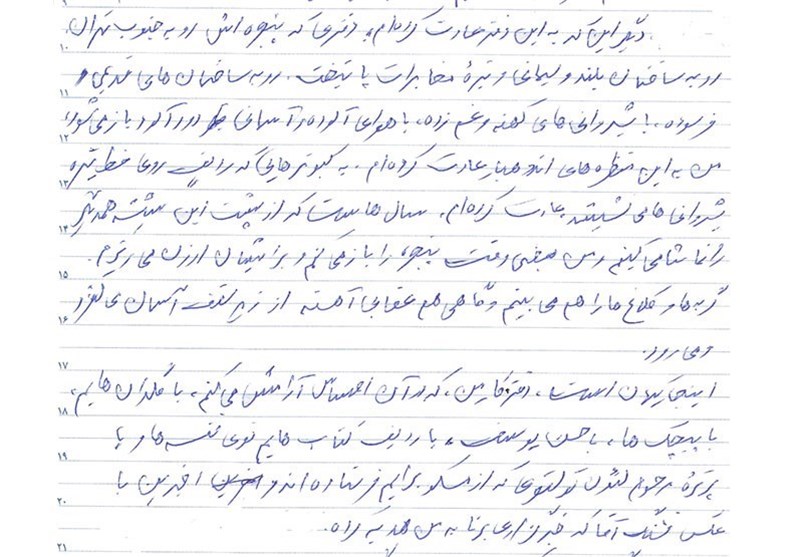 دیگر این که به این دفتر عادت کرده‌ام، دفتری که پنجره‌اش رو به جنوب تهران
۱۰
رو به ساختمان بلند و سیمانی و تیرهٔ مخابرات پایتخت. رو به ساختمان های قدیمی و
۱۱
فرسوده، با شیروانی های کهنه و غم زده، با هوای آلوده و آسمانی دودآلود باز می‌شود،
۱۲
من به این منظره های اندوهبار عادت کرده‌ام. به کبوترهایی که ردیف روی خط تیره
۱۳
شیروانی‌ها می نشینند عادت کرده‌ام. سال هاست که از پشت این شیشه همدیگر
۱۴
را تماشا می کنیم و من بعضی وقت پنجره را باز می کنم و برایشان ارزن می ریزم.
۱۵
گربه‌ها و کلاغ ها را هم می بینم و گاهی هم عقابی آهسته از زیر سقف آسمان می لغزد
۱۶
و می رود.
۱۷
اینجا است، دفتر کار من، که در آن احساس آرامش می کنم، با گلدان هایم،
۱۸
با پیچک ها، با حسن یوسف، با ردیف کتاب هایم توی قفسه ها و با
۱۹
پرترهٔ مرحوم لئون تولستوی که از مسکو برایم فرستاده اند و آخرین با
۲۰
عکس قشنگ آقا که خبرگزاری برنا به من هدیه داده.
۲۱